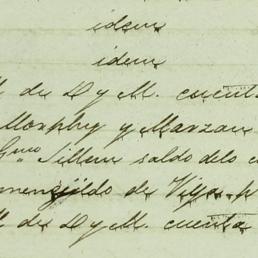 idem
idem
de D y M. cuenta
Morphy y Marzan
Gmo Tillem saldo delo
menegildo de Villa
de D y M. cuenta